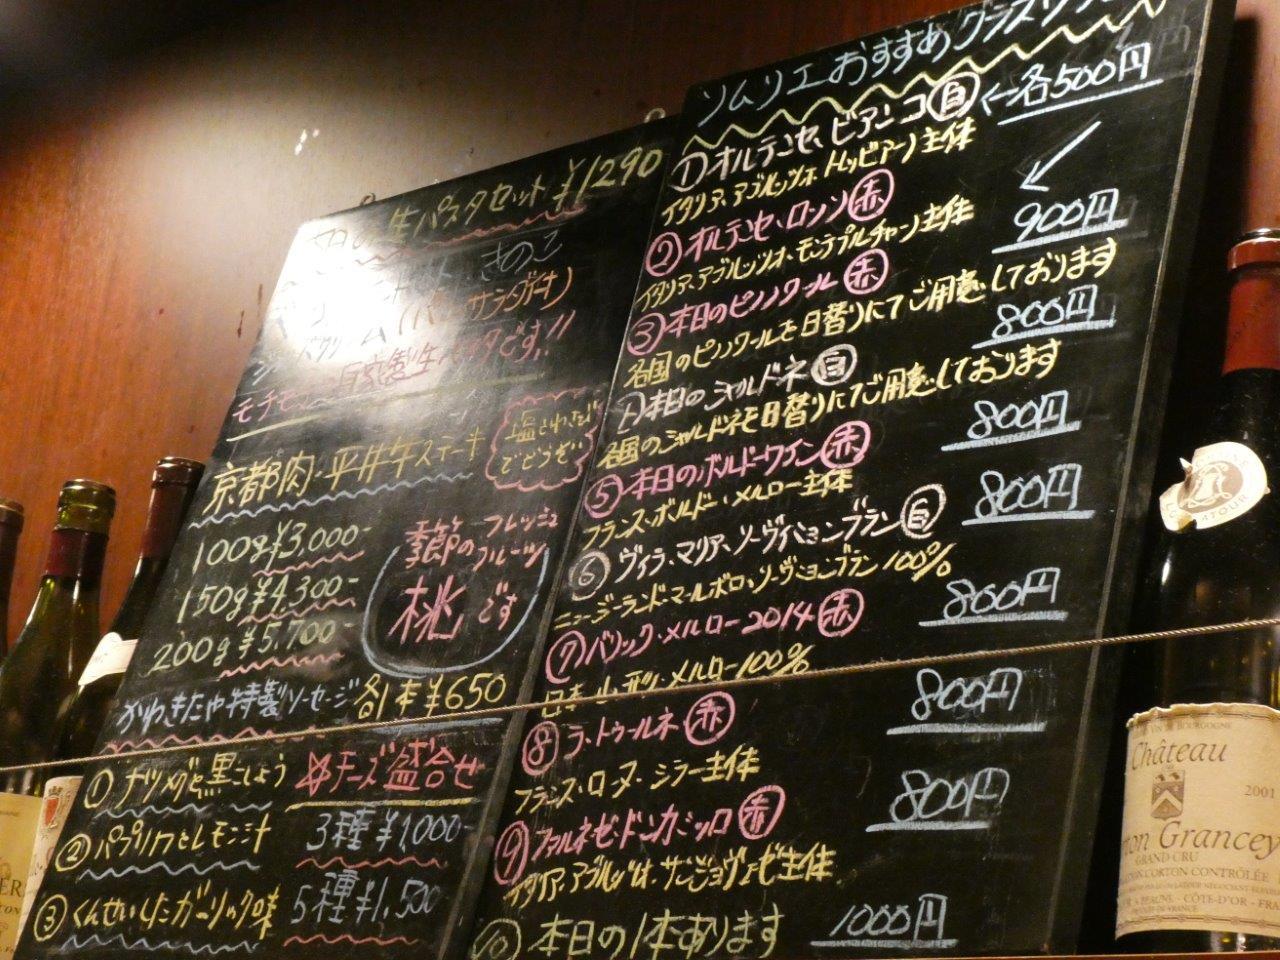 生パスタセット ¥1290
きのこ
サラダ付)
自家製生パスタです!!
京都肉・平井牛ステーキ
塩とわさびで
どうぞ
100g¥3,000-
150g¥4,300-
200g¥5,700-
季節のフレッシュ
フルーツ
桃です
かわきたや特製ソーセージ 各1本¥650
① ナツメグと黒こしょう
② パプリカとレモン汁
③ くんせいしたガーリック味
チーズ盛合せ
3種¥1,000-
5種¥1,500
ソムリエおすすめグラスワ
① オルテンセ、ビアンコ 白 ←各500円
イタリア、アブルッツォ トレッビアーノ主体
② オルテンセ・ロッソ 赤
イタリア、アブルッツォ・モンテプルチャーノ主体 900円
③ 本日のピノノワール 赤
各国のピノノワールを日替りにてご用意しております 800円
本日のシャルドネ 白
各国のシャルドネを日替りにてご用意しております 800円
⑤ 本日のボルドーワイン 赤
フランス・ボルドー・メルロー主体 800円
⑥ ヴィラ・マリア、ソーヴィニョンブラン 白
ニュージーランド・マールボロ・ソーヴィニョンブラン 100% 800円
⑦ バリック・メルロー2014 赤
日本・山形・メルロー100% 800円
⑧ ラ・トゥールネ 赤
フランス・ローヌ・シラー主体 800円
⑨ ファルネーゼ・ドン・カミッロ 赤
イタリア・アブルッツォ・サンジョヴェーゼ主体
⑩ 本日の1本あります 1000円
Château
2001
ton Grancey
GRAND CRU
CORTON CONTRÔLÉE